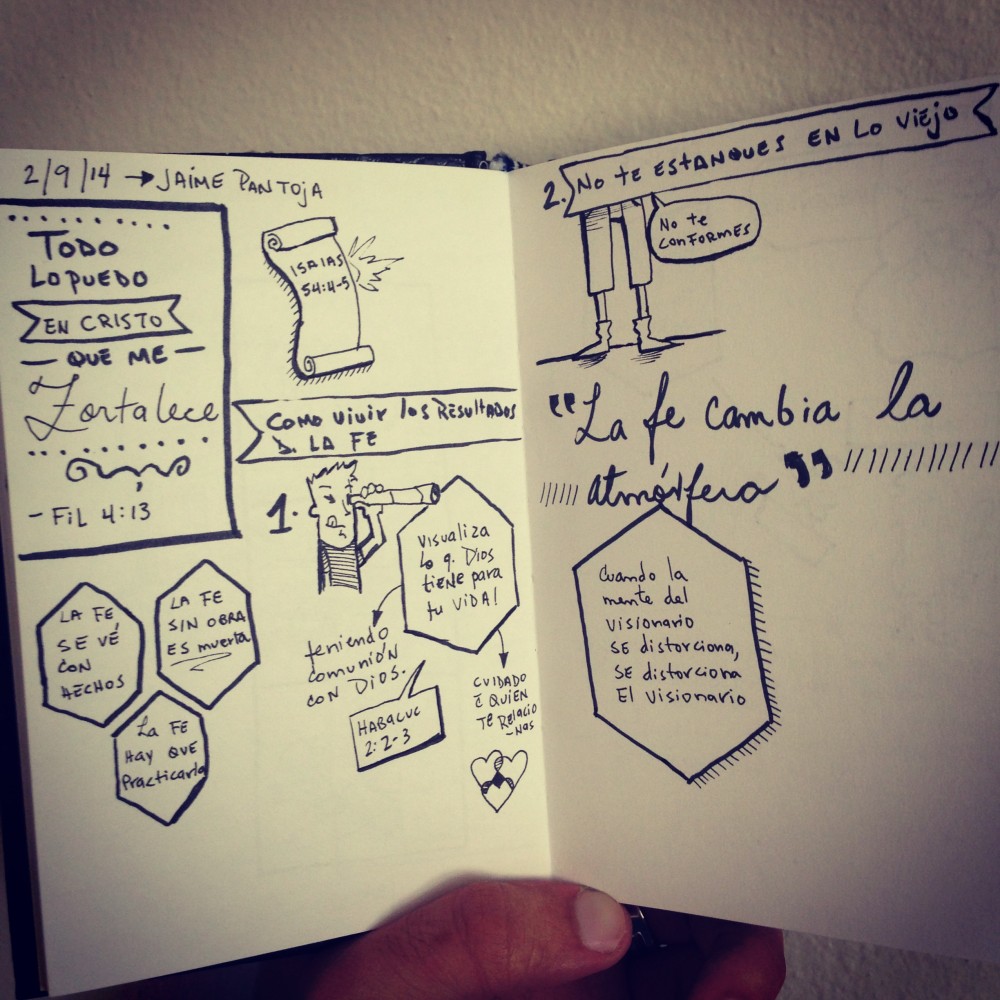 2/9/14 → JAIME PANTOJA
TODO
LO PUEDO
EN CRISTO
— QUE ME —
Fortalece
- FIL 4:13
ISAIAS
54:4-5
COMO VIVIR los RESULTADOS
D. LA FE
1.
VISUALIZA
Lo q. DIOS
TIENE para
tu VIDA!
teniendo
comunión
CON DIOS.
HABACUC
2:2-3
CUIDADO
C̄ QUIEN
TE RELACIO
-NAS
LA FE
SE VÉ
CON
HECHOS
LA FE
SIN OBRA
ES muerta
La FE
HAY QUE
Practicarla
2. No te ESTANQUES EN Lo Viejo
No te
CONFORMES
"La fe cambia la
atmósfera"
Cuando la
mente del
visionario
SE distorciona,
SE distorciona
El visionario